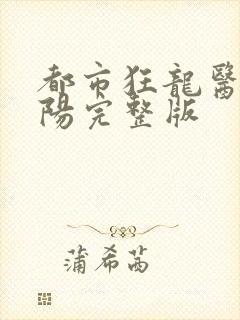 都市狂龍醫
陽完整版
蒲希茜